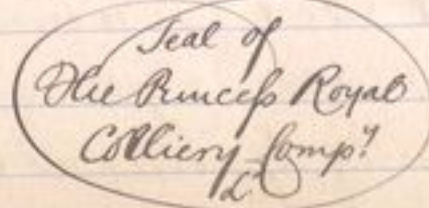 Seal of
The Princeſs Royal
Colliery Compy
Ld